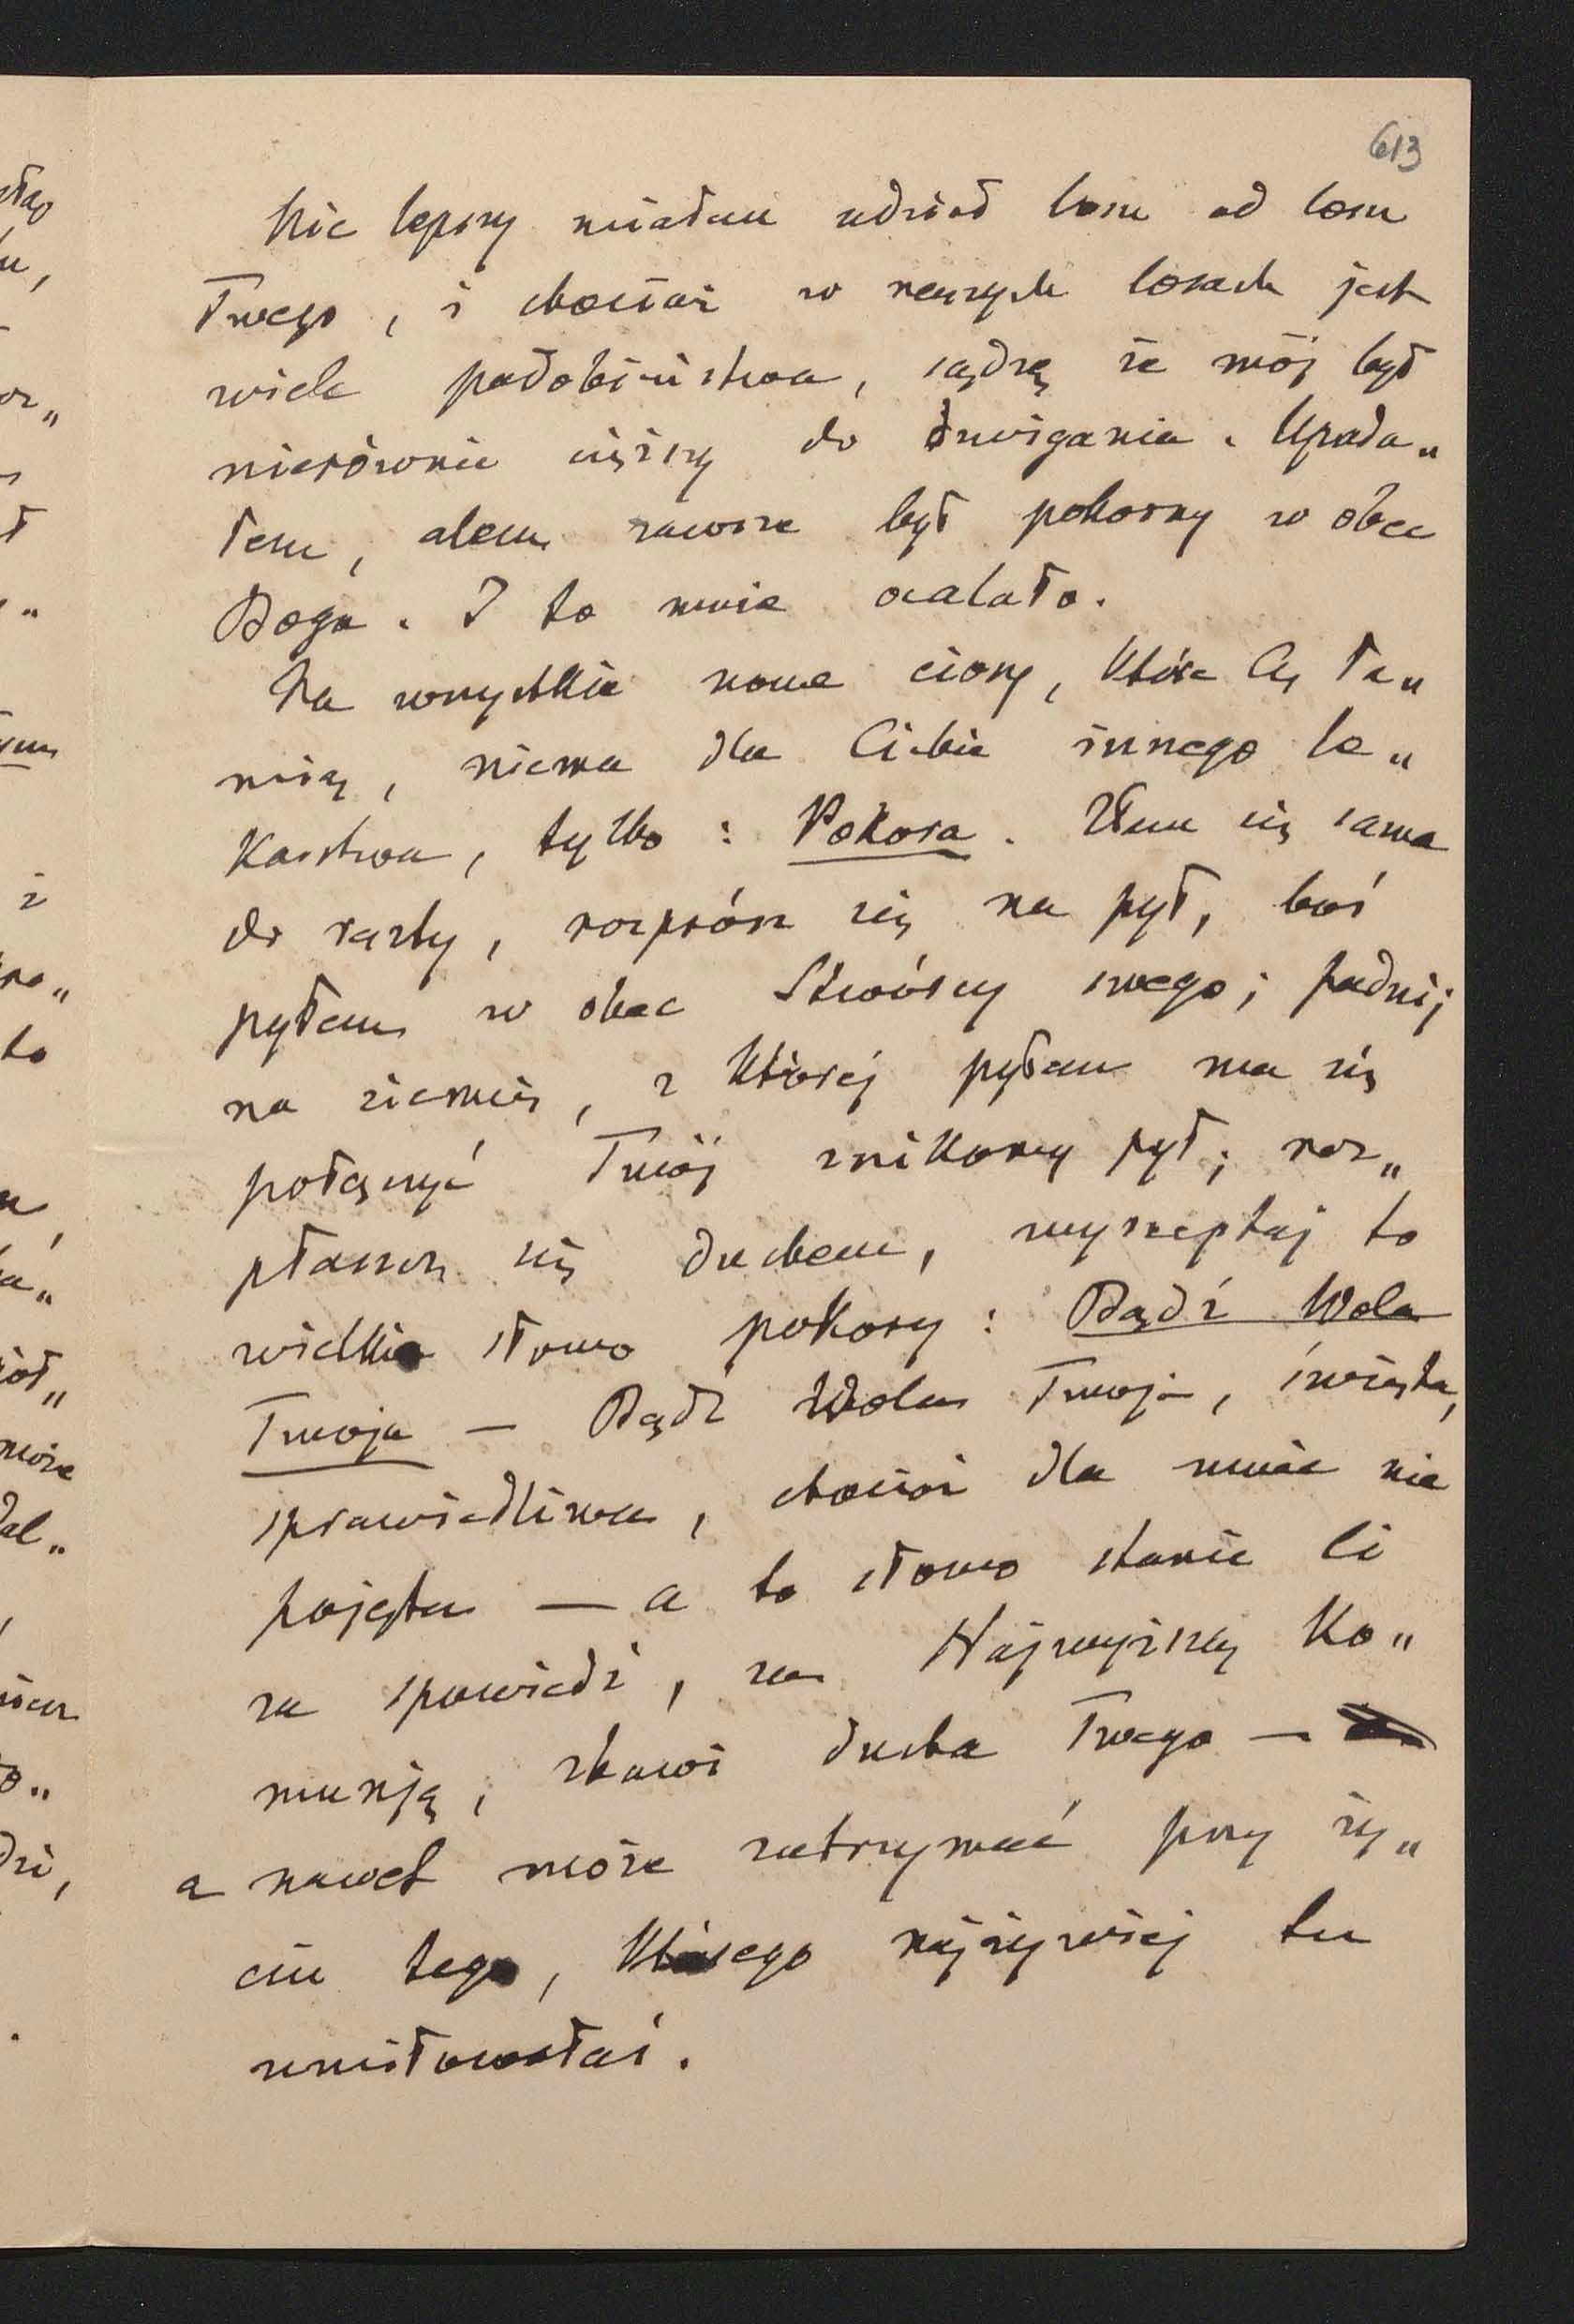 613
Nie lepszy miałem udział losu od losu
Twego, i chociaż w naszych losach jest
wiele podobieństwa, sądzę że mój był
nierównie cięższy do dźwigania. Upada„
łem, alem zawsze był pokorny w obec
Boga. I to mnie ocalało.
Na wszystkie nowe ciosy, które Cię ra„
nią, niema dla Ciebie innego le„
karstwa, tylko: Pokora. Złam się sama
do reszty, rozprósz się na pył, boś
pyłem w obec Stwórcy swego; padnij
na ziemię, z której pyłem ma się
połączyć Twój znikomy pył; roz„
płaszcz się duchem, wyszeptaj to
wielkie słowo pokory: Bądź Wola
Twoja — Bądź Wola Twoja, święta,
sprawiedliwa, chociaż dla mnie nie
pojęta — a to słowo stanie Ci
za spowiedź, za Najwyższą Ko„
munją, zbawi ducha Twego —
a nawet może zatrzymać przy ży„
ciu tego, którego najżywiej tu
umiłowałaś.